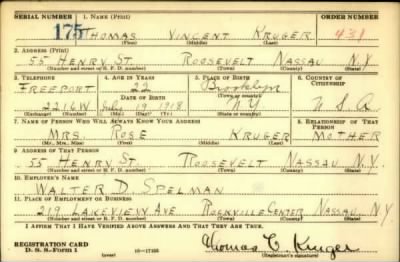 SERIAL NUMBER 1. NAME (Print) ORDER NUMBER
175 THOMAS VINCENT KRUGER 431
(First) (Middle) (Last)
2. ADDRESS (Print)
55 HENRY ST. ROOSEVELT NASSAU N.Y.
(Number and street or R. F. D. number) (Town) (County) (State)
3. TELEPHONE 4. AGE IN YEARS 5. PLACE OF BIRTH 6. COUNTRY OF CITIZENSHIP
FREEPORT 22 Brooklyn
DATE OF BIRTH (Town or county)
2216W July 19 1918 N.Y. U S A
(Exchange) (Number) (Mo.) (Day) (Yr.) (State or country)
7. NAME OF PERSON WHO WILL ALWAYS KNOW YOUR ADDRESS 8. RELATIONSHIP OF THAT PERSON
MRS. ROSE KRUGER MOTHER
(Mr., Mrs., Miss) (First) (Middle) (Last)
9. ADDRESS OF THAT PERSON
55 HENRY ST. ROOSEVELT NASSAU N.Y.
(Number and street or R. F. D. number) (Town) (County) (State)
10. EMPLOYER'S NAME
WALTER D. SPELMAN
11. PLACE OF EMPLOYMENT OR BUSINESS
219 LAKEVIEW AVE ROCKVILLE CENTER NASSAU N.Y.
(Number and street or R. F. D. number) (Town) (County) (State)
I AFFIRM THAT I HAVE VERIFIED ABOVE ANSWERS AND THAT THEY ARE TRUE.
REGISTRATION CARD Thomas V. Kruger
D. S. S. Form 1 (over) (Registrant's signature)